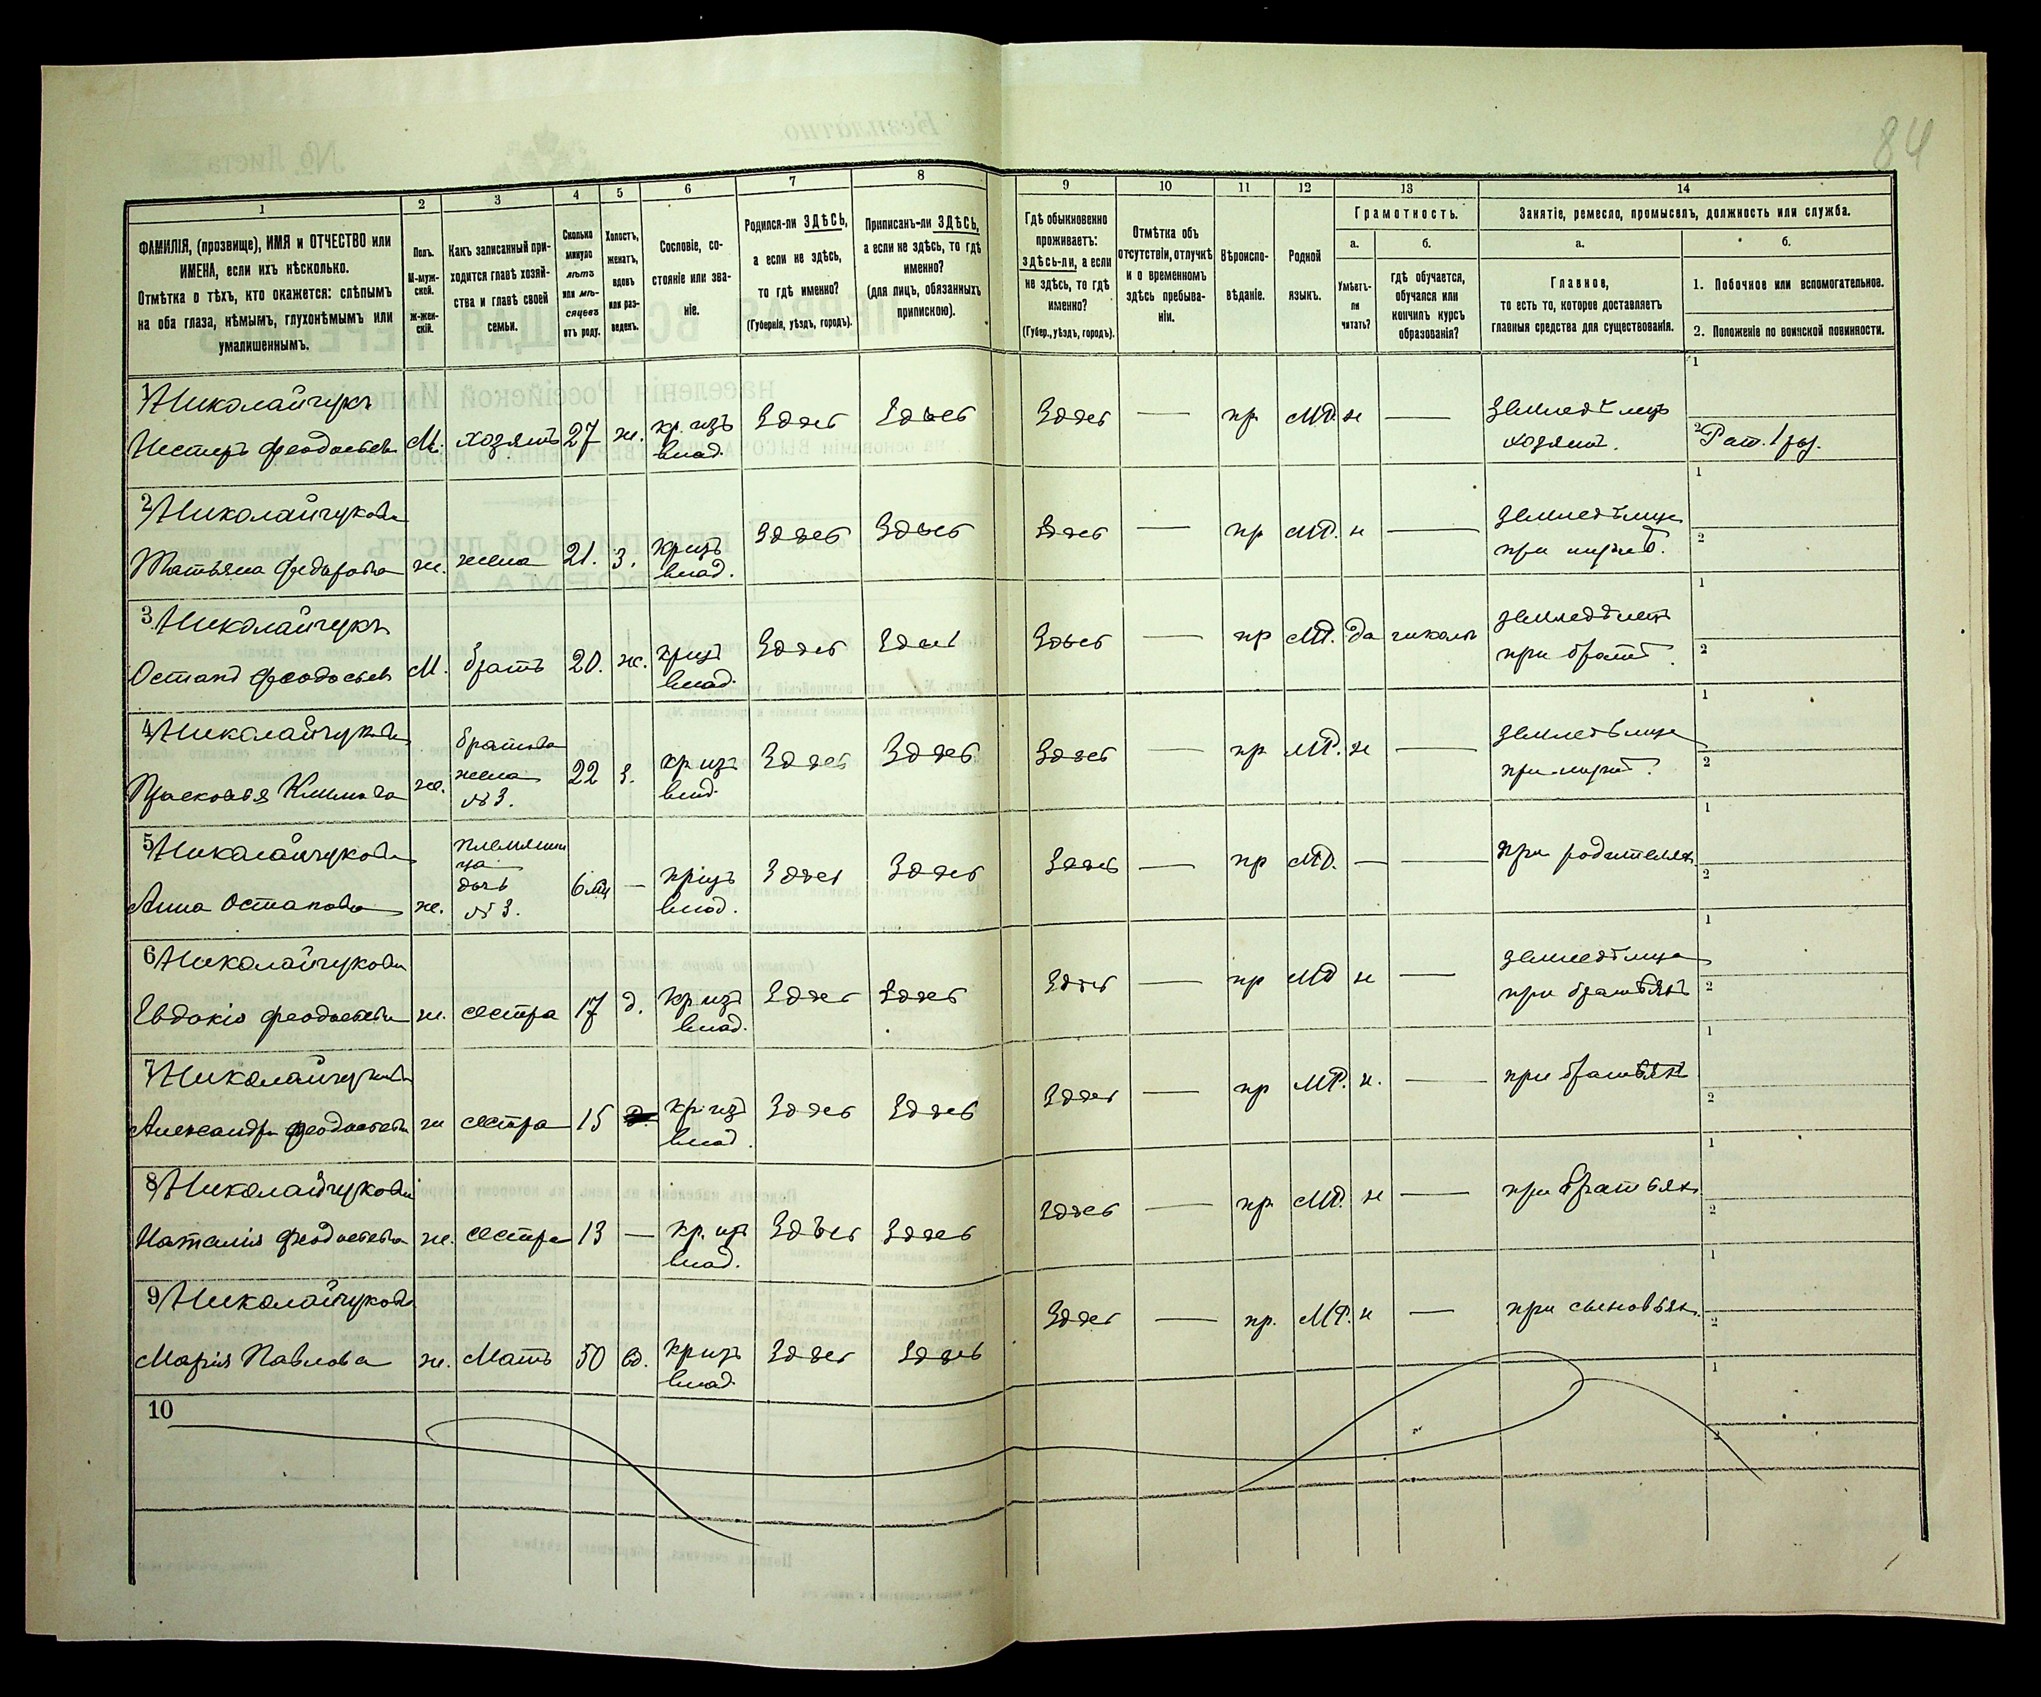 84
1 2 3 4 5 6 7 8 9 10 11 12 13 14
ФАМИЛІЯ, (прозвище), ИМЯ и ОТЧЕСТВО или
ИМЕНА, если ихъ нѣсколько.
Отмѣтка о тѣхъ, кто окажется: слѣпымъ
на оба глаза, нѣмымъ, глухонѣмымъ или
умалишеннымъ.
Полъ.
М-муж-
ской.
Ж-жен-
скій.
Какъ записанный при-
ходится главѣ хозяй-
ства и главѣ своей
семьи.
Сколько
минуло
лѣтъ
или мѣ-
сяцевъ
отъ роду.
Холостъ,
женатъ,
вдовъ
или раз-
веденъ.
Сословіе, со-
стояніе или зва-
ніе.
Родился-ли ЗДѢСЬ,
а если не здѣсь,
то гдѣ именно?
(Губернія, уѣздъ, городъ).
Приписанъ-ли ЗДѢСЬ,
а если не здѣсь, то гдѣ
именно?
(для лицъ, обязанныхъ
припискою).
Гдѣ обыкновенно
проживаетъ:
здѣсь-ли, а если
не здѣсь, то гдѣ
именно?
(Губер., уѣздъ, городъ).
Отмѣтка объ
отсутствіи, отлучкѣ
и о временномъ
здѣсь пребыва-
ніи.
Вѣроиспо-
вѣданіе.
Родной
языкъ.
Грамотность.
а.
Умѣетъ-
ли
читать?
б.
гдѣ обучается,
обучался или
кончилъ курсъ
образованія?
Занятіе, ремесло, промыселъ, должность или служба.
а.
Главное,
то есть то, которое доставляетъ
главныя средства для существованія.
б.
1. Побочное или вспомогательное.
2. Положеніе по воинской повинности.
1 Николайчукъ
Нестеръ Феодосьев М. хозяинъ 27 ж. кр. изъ
влад. Здѣсь Здѣсь Здѣсь — пр. МР. н — земледѣлецъ
хозяинъ. 1
2 Рат. 1 раз.
2 Николайчукова
Татьяна Федорова ж. жена 21. З. кр изъ
влад. Здѣсь Здѣсь Здѣсь — пр МР. н — земледѣлица
при мужѣ. 1
2
3 Николайчукъ
Остапъ Феодосьев М. братъ 20. ж. кр изъ
влад. Здѣсь Здѣсь Здѣсь — пр МР. да школы земледѣлецъ
при братѣ. 1
2
4 Николайчукова
Прасковья Климова ж. братова
жена
№ 3. 22 З. кр изъ
влад. Здѣсь Здѣсь Здѣсь — пр МР. н — земледѣлица
при мужѣ. 1
2
5 Николайчукова
Анна Остапова ж. племянни
ца
дочь
№ 3. 6 мц — кр изъ
влад. Здѣсь Здѣсь Здѣсь — пр МР. — — при родителях 1
2
6 Николайчукова
Евдокія Феодосьева ж. сестра 17 д. кр изъ
влад. Здѣсь Здѣсь Здѣсь — пр МР н — земледѣлица
при братьяхъ 1
2
7 Николайчукова
Александра Феодосьева ж сестра 15 кр изъ
влад. Здѣсь Здѣсь Здѣсь — пр МР. н. — при братьяхъ 1
2
8 Николайчукова
Наталія Феодосьева ж. сестра 13 — кр. изъ
влад. Здѣсь Здѣсь Здѣсь — пр. МР. н — при братьях 1
2
9 Николайчукова
Марія Павлова ж. Мать 50 вд. кр изъ
влад Здѣсь Здѣсь Здѣсь — пр. МР. н — при сыновьях. 1
2
10 1
2